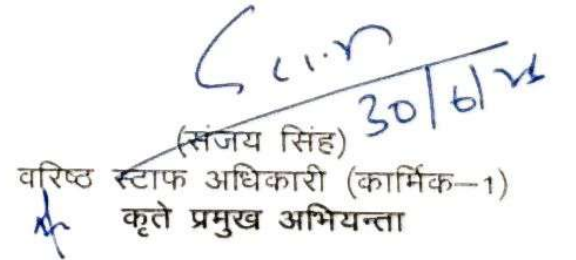 30/6/25
(संजय सिंह)
वरिष्ठ स्टाफ अधिकारी (कार्मिक–1)
कृते प्रमुख अभियन्ता